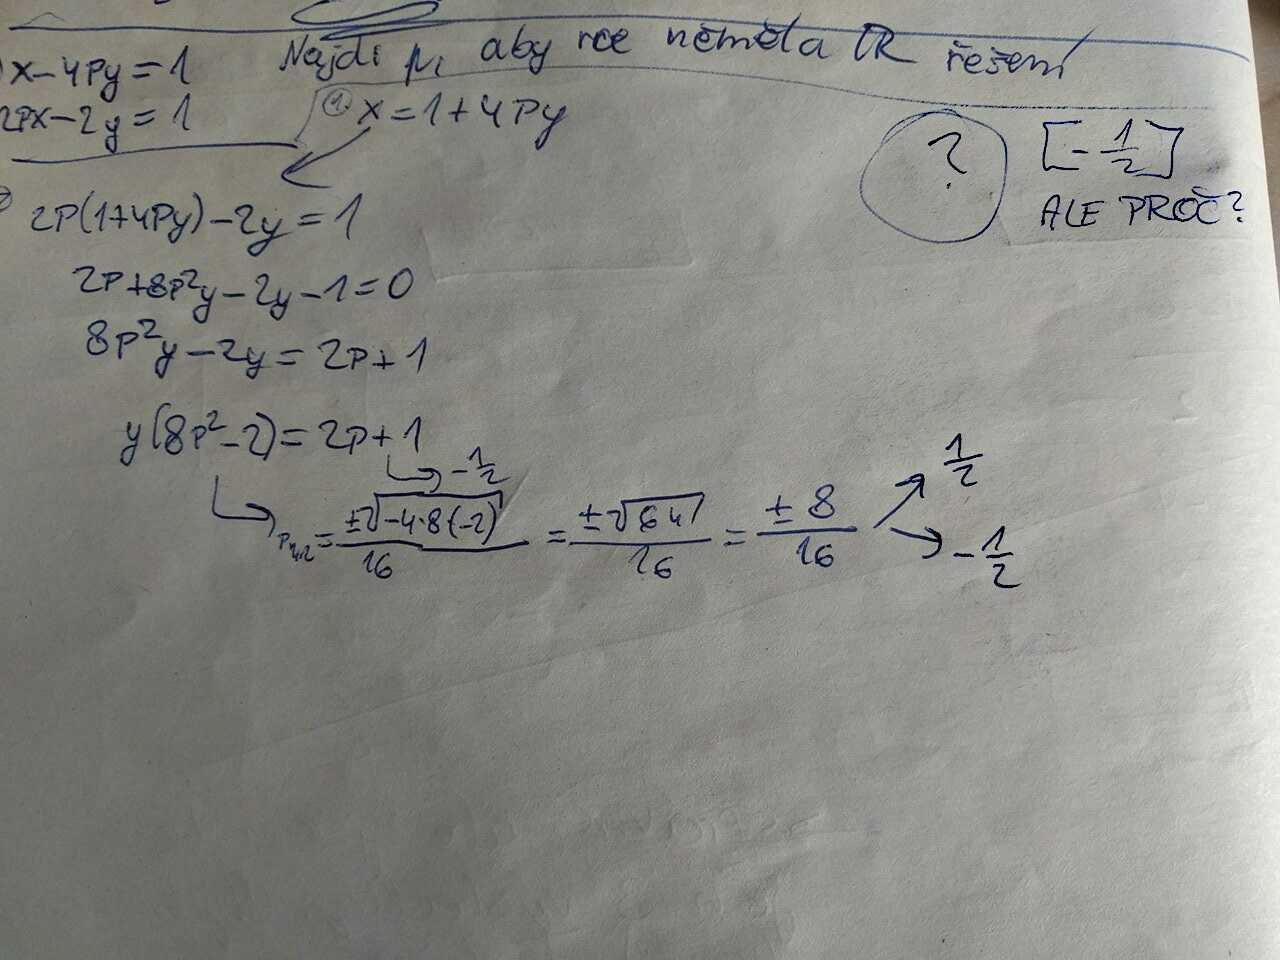 x-4py=1
Najdi p, aby rce neměla ℝ řešení
2px-2y=1
① x=1+4py
?
[-1/2]
ALE PROČ?
2p(1+4py)-2y=1
2p+8p²y-2y-1=0
8p²y-2y=2p+1
y(8p²-2)=2p+1
-1/2
p₁,₂=±√-4·8(-2)/16=±√64/16=±8/16
1/2
-1/2